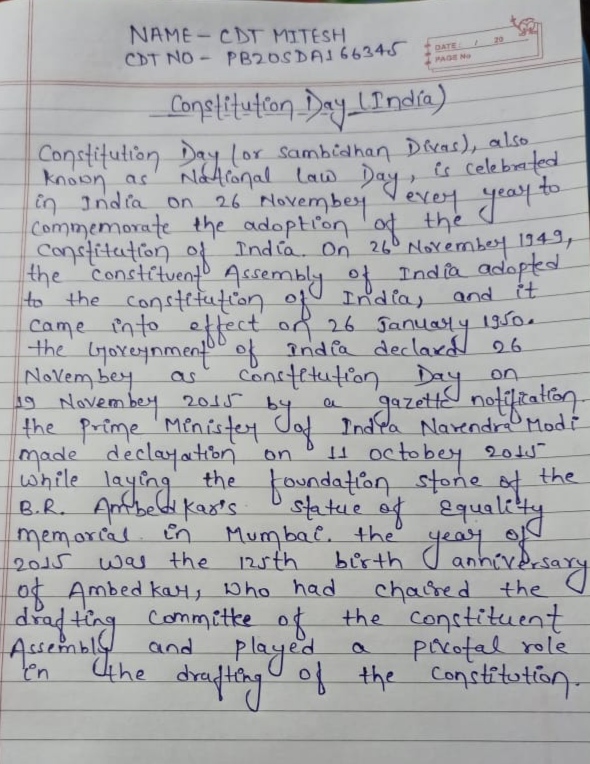 NAME - CDT MITESH
CDT NO - PB20SDA166345
DATE: / 20
PAGE No
Constitution Day (India)
Constitution Day (or Sambidhan Divas), also
known as National Law Day, is celebrated
in India on 26 November every year to
commemorate the adoption of the
Constitution of India. On 26 November 1949,
the constituent Assembly of India adopted
to the constitution of India, and it
came into effect on 26 January 1950.
the Government of India declared 26
November as constitution Day on
19 November 2015 by a gazette notification.
the Prime Minister of India Narendra Modi
made declaration on 11 October 2015
while laying the foundation stone of the
B.R. Ambedkar's statue of Equality
memorial in Mumbai. the year of
2015 was the 125th birth anniversary
of Ambedkar, who had chaired the
drafting committee of the constituent
Assembly and played a pivotal role
in the drafting of the constitution.